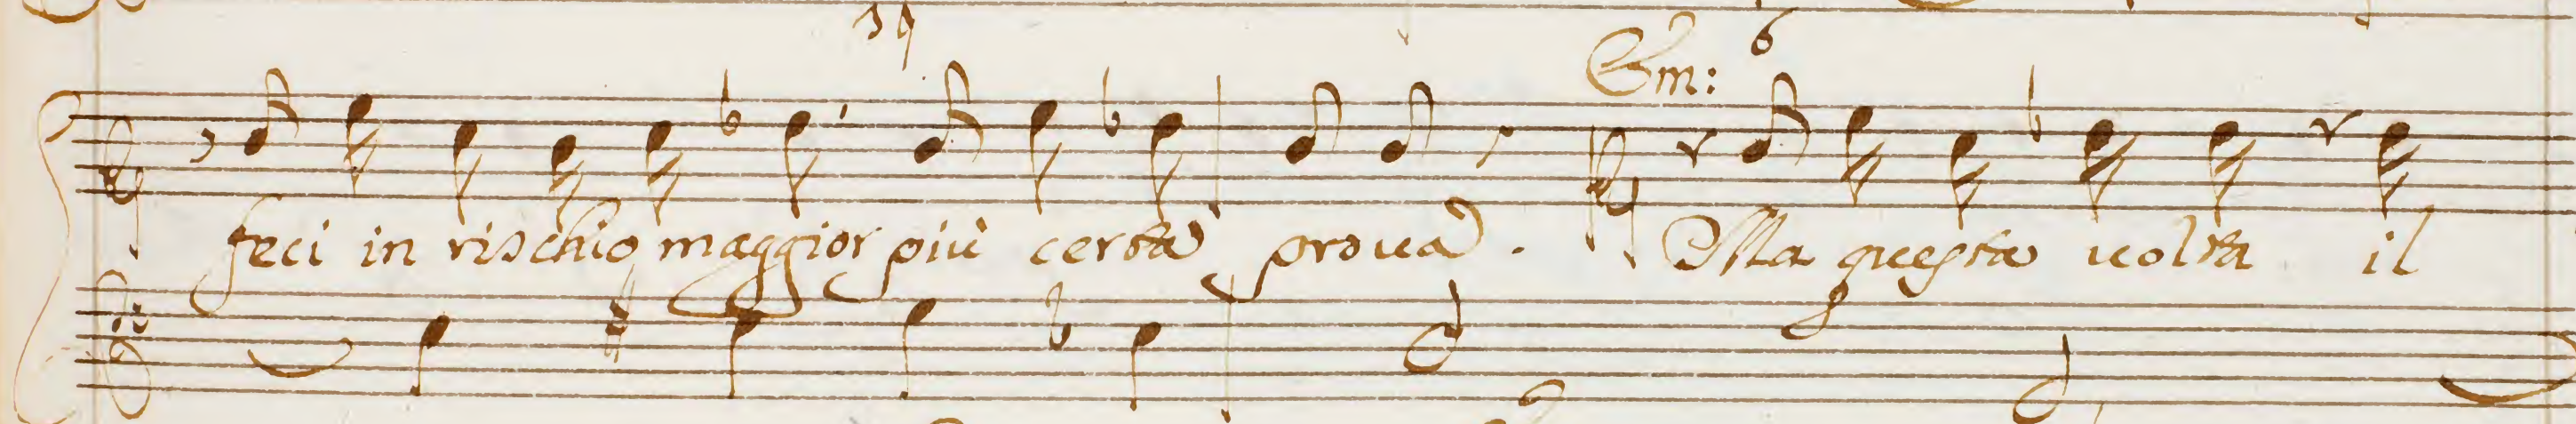 39 6
Em:
feci in rischio maggior più certa proua. Ma questa uolta il